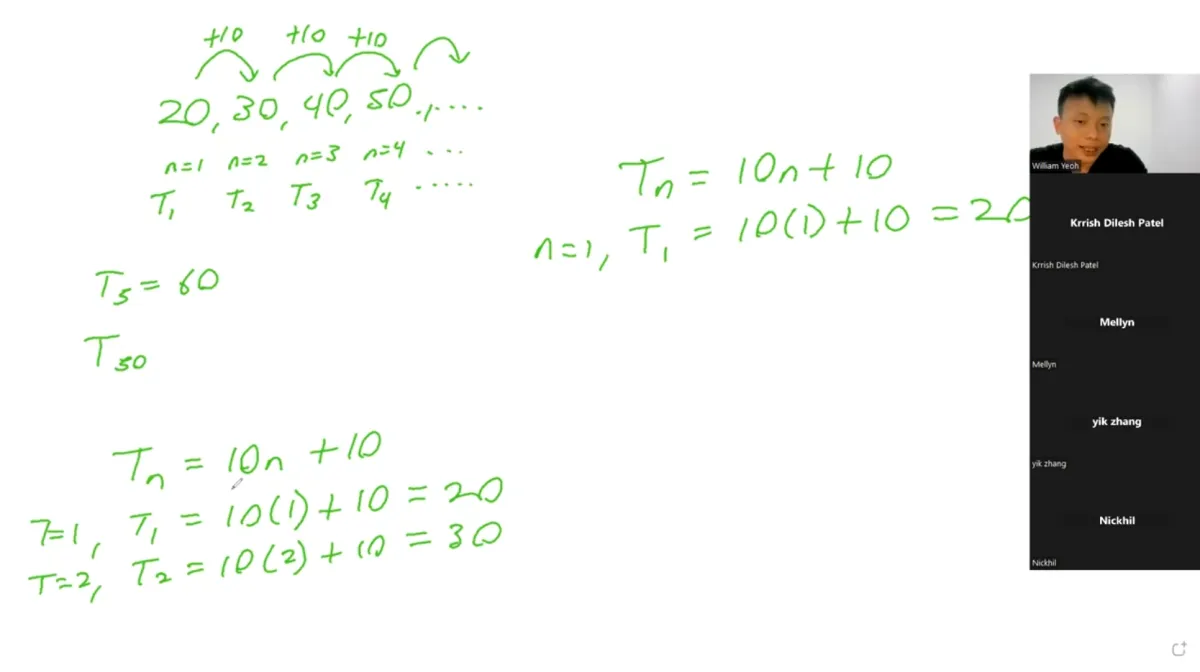 +10 +10 +10
20, 30, 40, 50, ....
n=1 n=2 n=3 n=4 ...
T₁ T₂ T₃ T₄ .....
T₅ = 60
T₅₀
Tₙ = 10n + 10
T=1, T₁ = 10(1) + 10 = 20
T=2, T₂ = 10(2) + 10 = 30
Tₙ = 10n + 10
n=1, T₁ = 10(1) + 10 = 20
William Yeoh
Krrish Dilesh Patel
Krrish Dilesh Patel
Mellyn
Mellyn
yik zhang
yik zhang
Nickhil
Nickhil